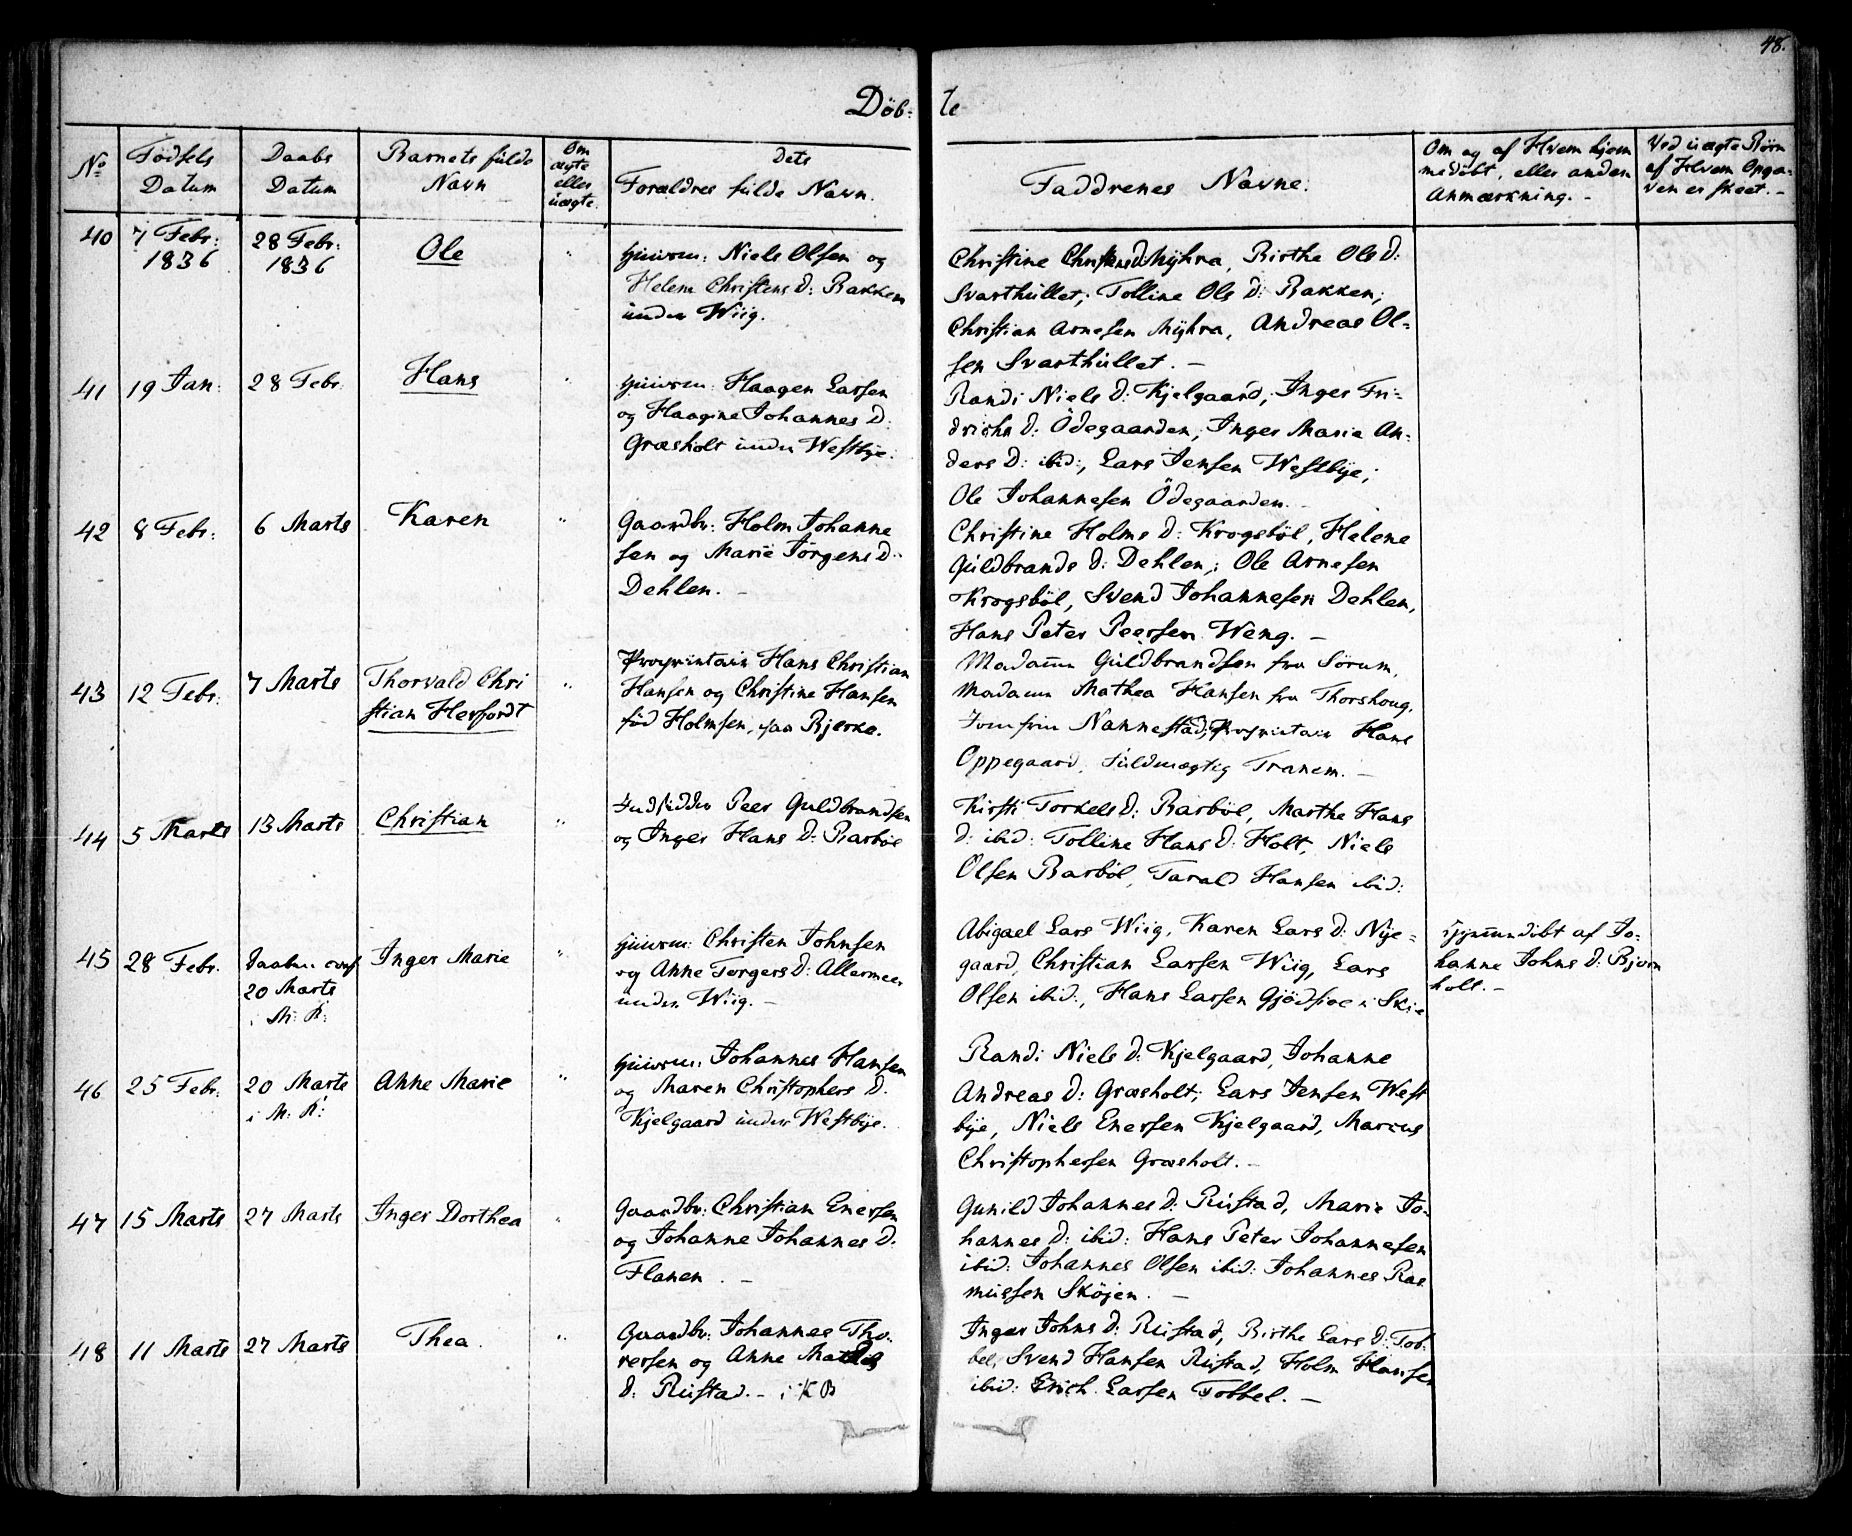 48.
Döb-
te
No
Födsels Datum
Daabs Datum
Barnets fülde Navn
Om ægte eller üægte.
dets
Forældres fülde Navn.
Faddrenes Navne.
Om og af Hvem hjem
medöbt, eller anden
Anmærkning. -
Ved üægte Börn
af Hvem Opga-
ven er skeet. -
40
7 Febr:
1836
28 Febr:
1836
Ole
"
Hüusm: Niels Olsen og
Helene Christens D: Bakken
ünder Wiig.
Christine Christens D Mÿhra, Birthe Ols D:
Svarthüllet; Tolline Ols D: Bakken;
Christian Arnesen Mÿhra, Andreas Ol-
sen Svarthüllet. -
41
19 Jan:
28 Febr.
Hans
"
Hüusm: Haagen Larsen
og Haagine Johannes D:
Græsholt ünder Westbÿe.
Randi Niels D: Kjelgaard, Inger Fri-
drichs D: Ödegaarden, Inger Marie An-
ders D: ibid:, Lars Jensen Westbÿe;
Ole Johannesen Ödegaarden. -
42
8 Febr:
6 Marts
Karen
"
Gaardbr: Holm Johanne
sen og Marie Jörgens D:
Dehlen. -
Christine Holms D: Krogsböl, Helene
Güldbrands D: Dehlen; Ole Arnesen
Krogsböl, Svend Johannesen Dehlen,
Hans Peter Peersen Weng. -
43
12 Febr.
7 Marts
Thorvald Chri
stian Herfordt
"
Proprietair Hans Christian
Hansen og Christine Hansen
föd Holmsen, paa Bjerke.
Madame Güldbrandsen fra Sörum,
Madame Mathea Hansen fra Thorshoug,
Jomfrü Nannestad, Proprietair Hans
Oppegaard, Füldmægtig Tranem. -
44
5 Marts
13 Marts
Christian
"
Indsidder Peer Guldbrandsen
og Inger Hans D: Barböl
Kirsti Torkels D: Barböl, Marthe Hans
D: ibid: Tolline Hans D: Holt, Niels
Olsen Barböl, Tarald Hansen ibid:
45
28 Febr.
Daaben
20 Marts
i M: K:
Inger Marie
"
Hüusm: Christen Johnsen
og Anne Torgers D: Allermeer
ünder Wiig. -
Abigael Lars Wiig, Karen Lars D: Nÿe-
gaard, Christian Larsen Wiig, Lars
Olsen ibid:, Hans Larsen Gjödsioe i Skie
Hjemmedöbt af Jo-
hanne Johns D: Bjørn
holt. -
46
25 Febr:
20 Marts
i M: K:
Anne Marie
"
Hüusm: Johannes Hansen
og Maren Christophers D:
Kjelgaard ünder Westbÿe.
Randi Niels D: Kjelgaard, Johanne
Andreas D: Græsholt; Lars Jensen West
bÿe, Niels Enersen Kjelgaard, Marcus
Christophersen Græsholt. -
47
15 Marts
27 Marts
Inger Dorthea
"
Gaardbr: Christian Enersen
og Johanne Johannes D:
Flanen. -
Gunild Johannes D: Rüstad, Marie Jo-
hannes D: ibid: Hans Peter Johannesen
ibid: Johannes Olsen ibid: Johannes Ras
müssen Sköjen. -
48
11 Marts
27 Marts
Thea.
"
Gaardbr: Johannes Tho-
rersen og Anne
D: Rüstad. - i KB
Inger Johns D: Rüstad, Birthe Lars D: Tob-
bel, Svend Hansen Rüstad, Holm Hansen
ibid: Erich Larsen Tobbel. -